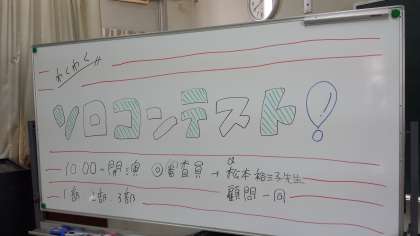 わくわく
ソロコンテスト!
10:00~開演 ◎審査員 → 松本裕子先生
1部 2部 3部 顧問一同